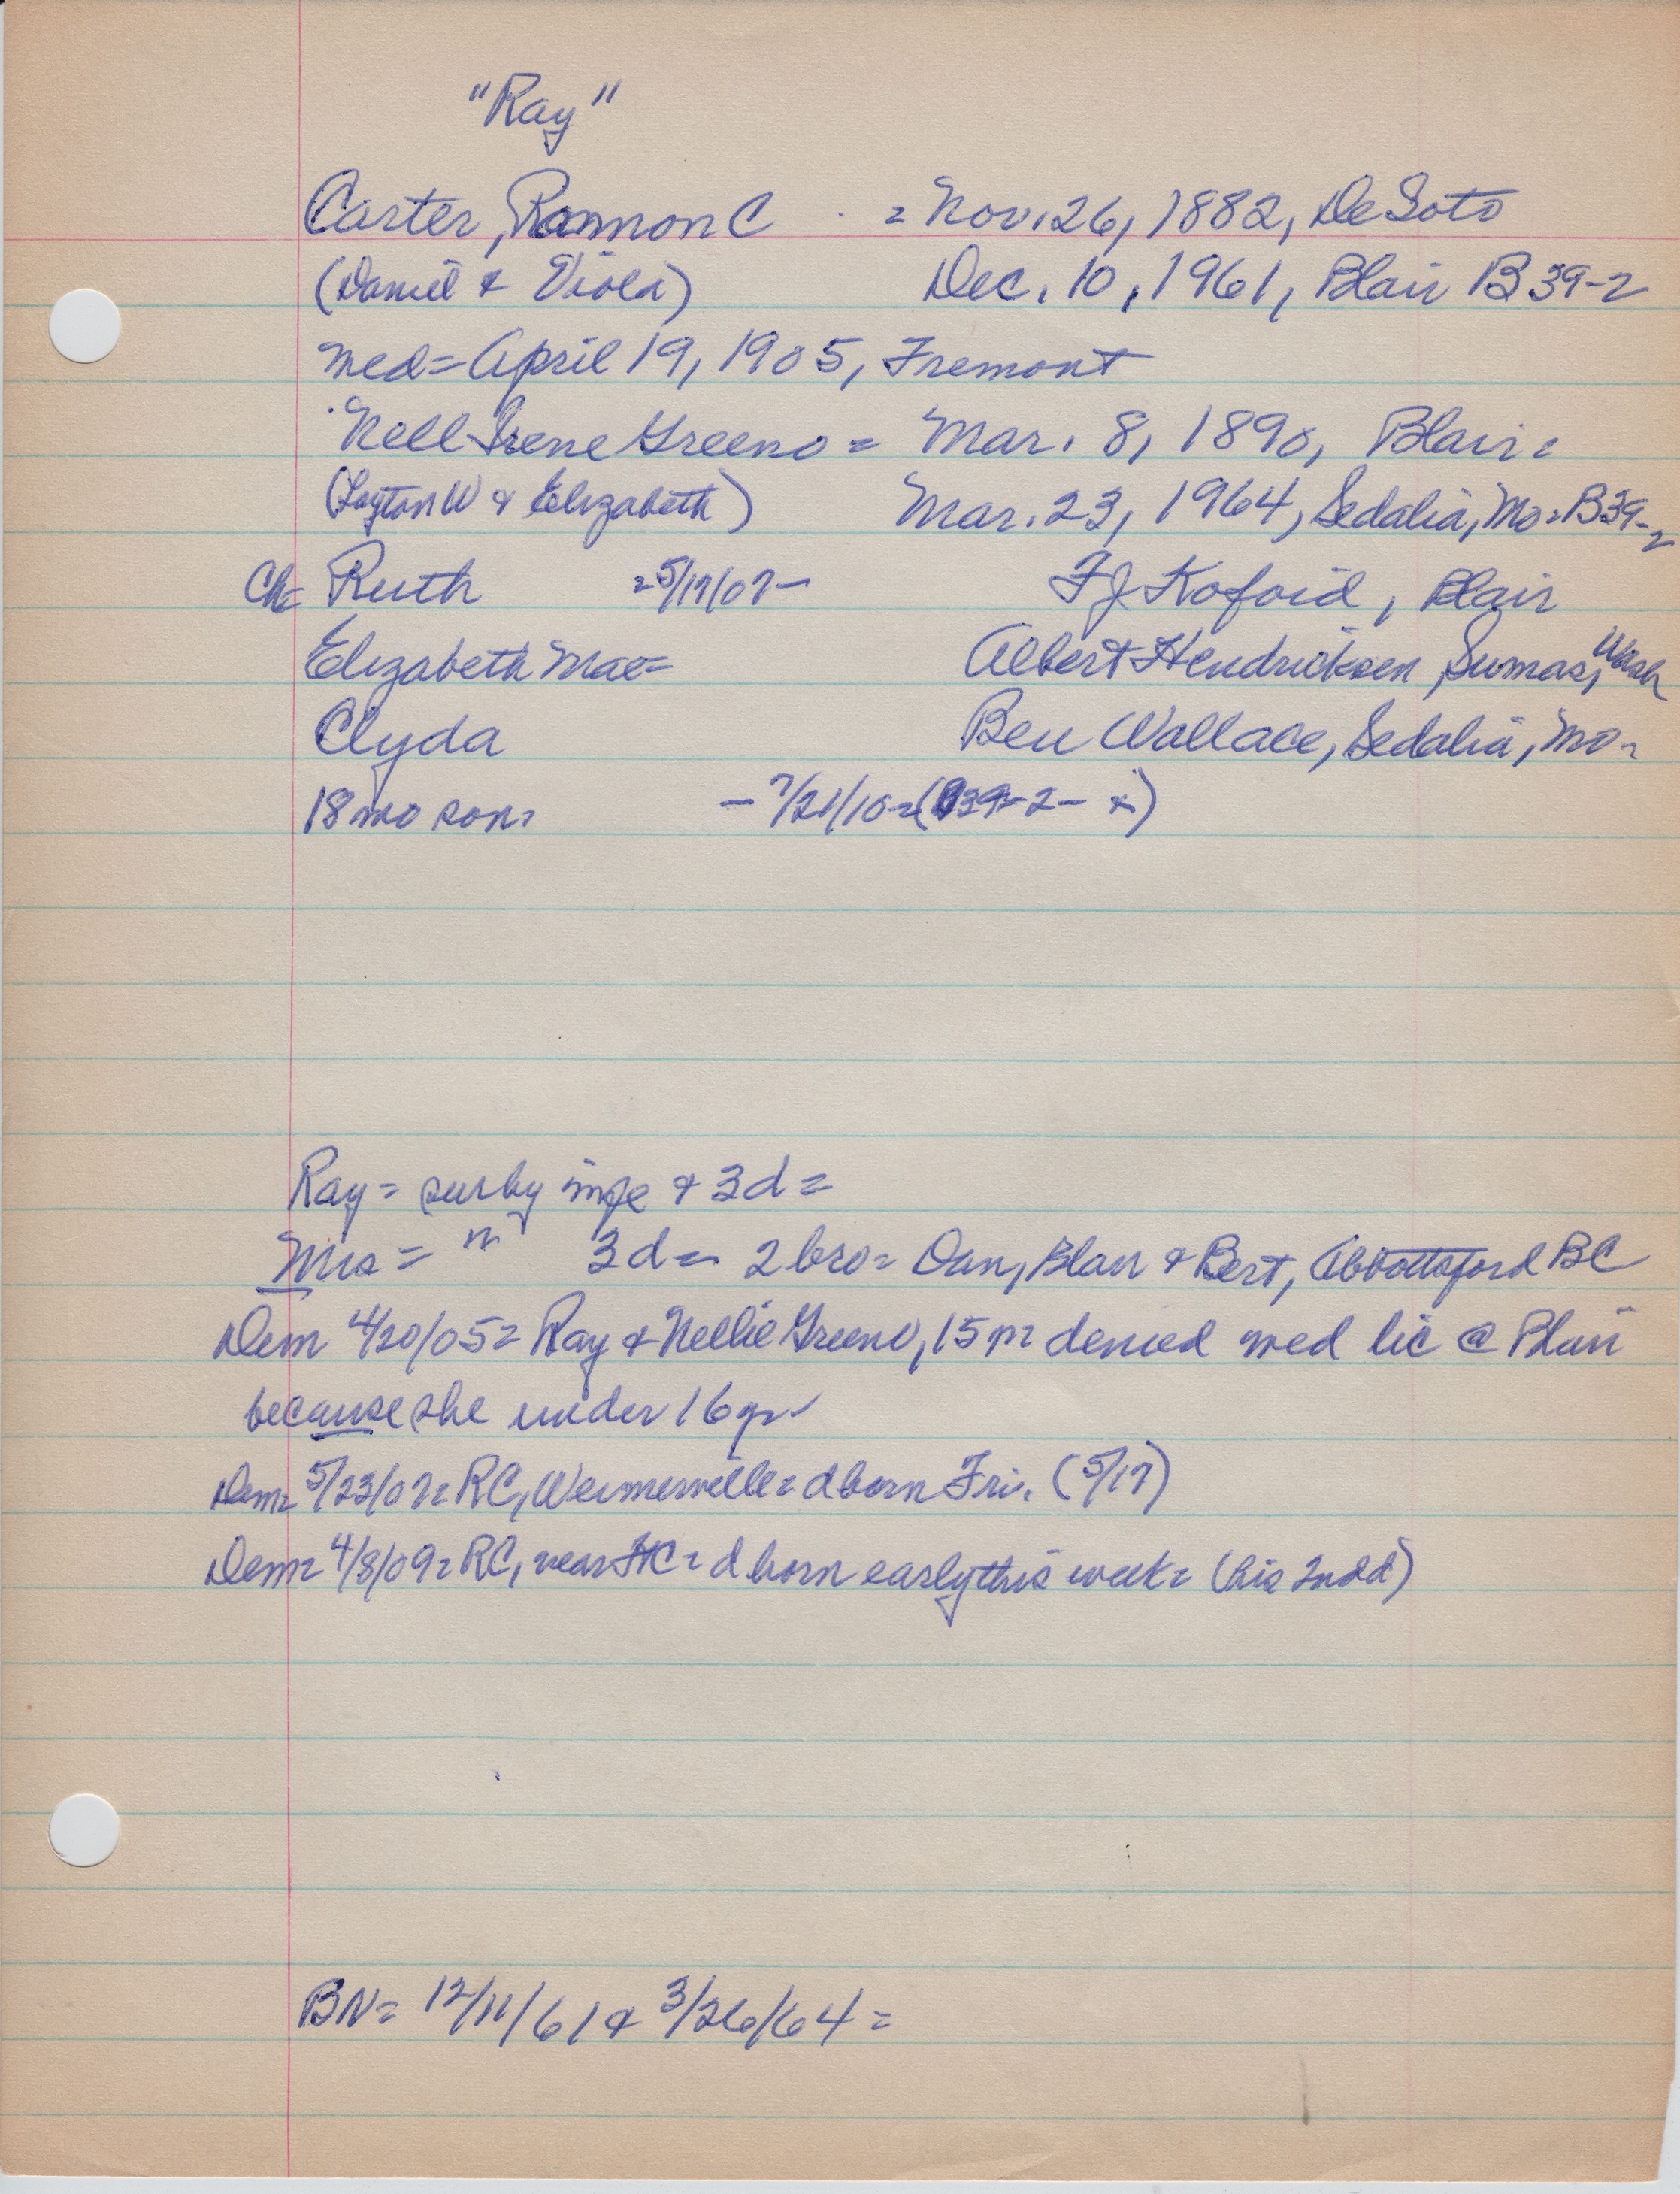 "Ray"
Carter, Ramon C = Nov. 26, 1882, DeSoto
(Daniel & Viola) Dec. 10, 1961, Blair B 39-2
med = April 19, 1905, Fremont
Nell Irene Greeno = Mar. 8, 1890, Blair =
(Layton W & Elizabeth) Mar. 23, 1964, Sedalia, Mo = B39-2
Ch = Ruth = 5/17/07 - F J Kofoid, Blair
Elizabeth Mae = Albert Hendricksen, Sumas, Wash
Clyda Ben Wallace, Sedalia, Mo -
18 mo son = - 7/21/10 = (B39-2- x)
Ray = sur by & 3d =
Mrs = " 3d = 2 bro = Dan, Blair & Bert, Abbottsford BC
Dem 4/20/05 = Ray & Nellie Greeno, 15 denied med lic @ Blair
because she under 16 yr
Dem = 5/23/07 = RC, = d born Fri. (5/17)
Dem = 4/8/09 = RC, near = d born early this week = (his 2nd d)
BN = 12/11/61 & 3/26/64 =